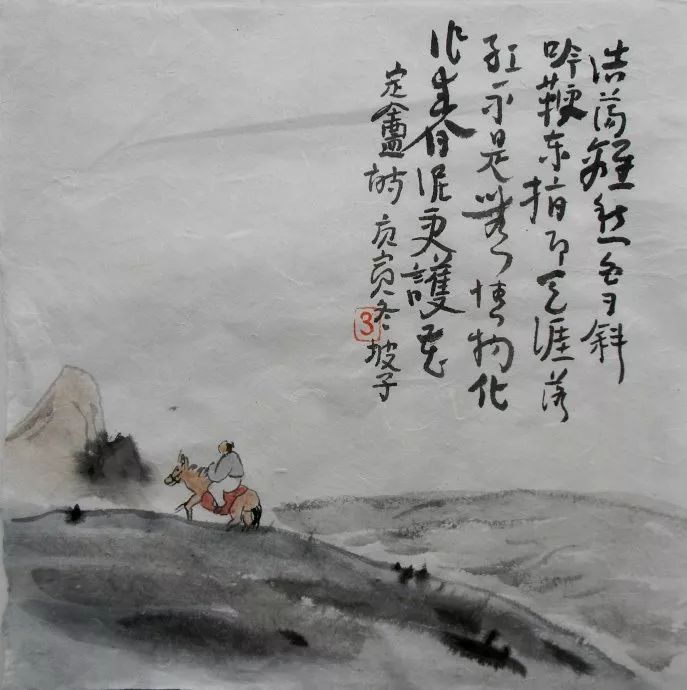 浩荡離愁白日斜
吟鞭东指即天涯落
红不是無情物化
作春泥更護花
定盦詩 庚寅冬 坡子
3